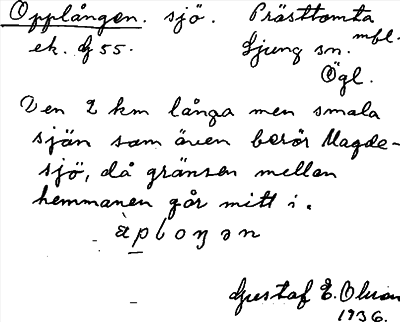 Opplången. sjö. Prästtomta
mfl.
ek. G 55. Ljung sn.
Ögl.
Den 2 km långa men smala
sjön som även berör Magde-
sjö, då gränsen mellan
hemmanen går mitt i.
Gustaf E. Olsson
1936.